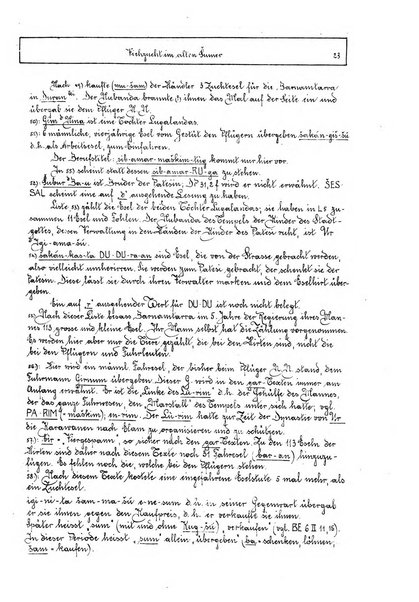 Viehzucht im alten Sumer 23
Nach 49) kaufte (mu-šam) der Händler 3 Zuchtesel für die Barnamtarra
in Duran ki. Der Nubanda brannte ihnen das Mal auf der Seite ein und
übergab sie dem Pflüger U.U.
50): Gim-Nina ist eine Tochter Lugalandas.
51): 6 männliche, vierjährige Esel vom Gestüt den Pflügern übergeben
d.h. als Arbeitsesel, zum Einfahren.
Der Berufstitel: sib-amar-maškim kommt nur hier vor.
In 35) scheint statt dessen sib-amar-RU-ga zu stehen.
52): Šubur-Ba-u ist Bruder des Patesi; DP 31, 2 wird er nicht erwähnt. ŠEŠ-
SAL scheint eine auf ausgehende Lesung zu haben.
Liste 53) zählt die Esel der beiden Töchter Lugalandas; sie haben in L 52 zu-
sammen 11 Esel und Fohlen. Der Nubanda des Tempels der Kinder des Stadt-
gottes, dessen Verwaltung in den Händen der Kinder des Patesi ruht, ist Ur
d Igi-ama-šù.
54): DU-DU-ra-an sind Esel, die von der Strasse gebracht werden,
also vielleicht umherirren. Sie werden zum Patesi gebracht, der schenkt sie der
Patesin. Diese lässt sie durch ihren Verwalter marken und dem Eselhirt über-
geben.
Ein auf "r" ausgehender Wert für DU-DU ist noch nicht belegt.
55): Nach dieser Liste besass Barnamtarra im 5. Jahre der Regierung ihres Man-
nes 113 grosse und kleine Esel. Ihr Mann selbst hat die Zählung vorgenommen.
Es werden hier aber nur die Tiere gezählt, die bei den Hirten sind, nicht die
bei den Pflügern und Fuhrleuten.
56): Hier wird ein männl. Fahresel, der bisher beim Pflüger U.U. stand, dem
Fuhrmann Girnum übergeben. Dieser G. wird in den gar-Texten immer am
Anfang erwähnt. Er ist die "Linke des Lu-rim," d.h. der Gehülfe des Mannes,
der das ganze Fuhrwesen, den "Marstall" des Tempels unter sich hatte; vgl.
PA-RIM = maškim; en-rim. Der Lu-rim hatte zur Zeit der Dynastie von Ur
die Karawanen nach Elam zu organisieren und zu schützen.
57): "Tiergespann", so sicher nach den gar-Texten. Zu den 113 Eseln der
Hirten sind daher nach diesem Texte noch 51 Fahresel (bar-an) hinzuzu-
fügen. Es fehlen noch die, welche bei den Pflügern stehen.
58): Nach diesem Texte kostete eine eingefahrene Eselstute 5 mal mehr, als
ein Zuchtesel.
igi-ni-ta sam-ma-šù e-ne-sum d.h. in seiner Gegenwart übergab
er sie ihnen gegen den Kaufpreis, d.h. er verkaufte sie ihnen.
Später heisst "sum" (mit und ohne Kug-šù) "verkaufen" (vgl. BE 6 II 11, 16).
In dieser Periode heisst "sum" allein "übergeben" (ba = schenken, löhnen,
šam = kaufen).